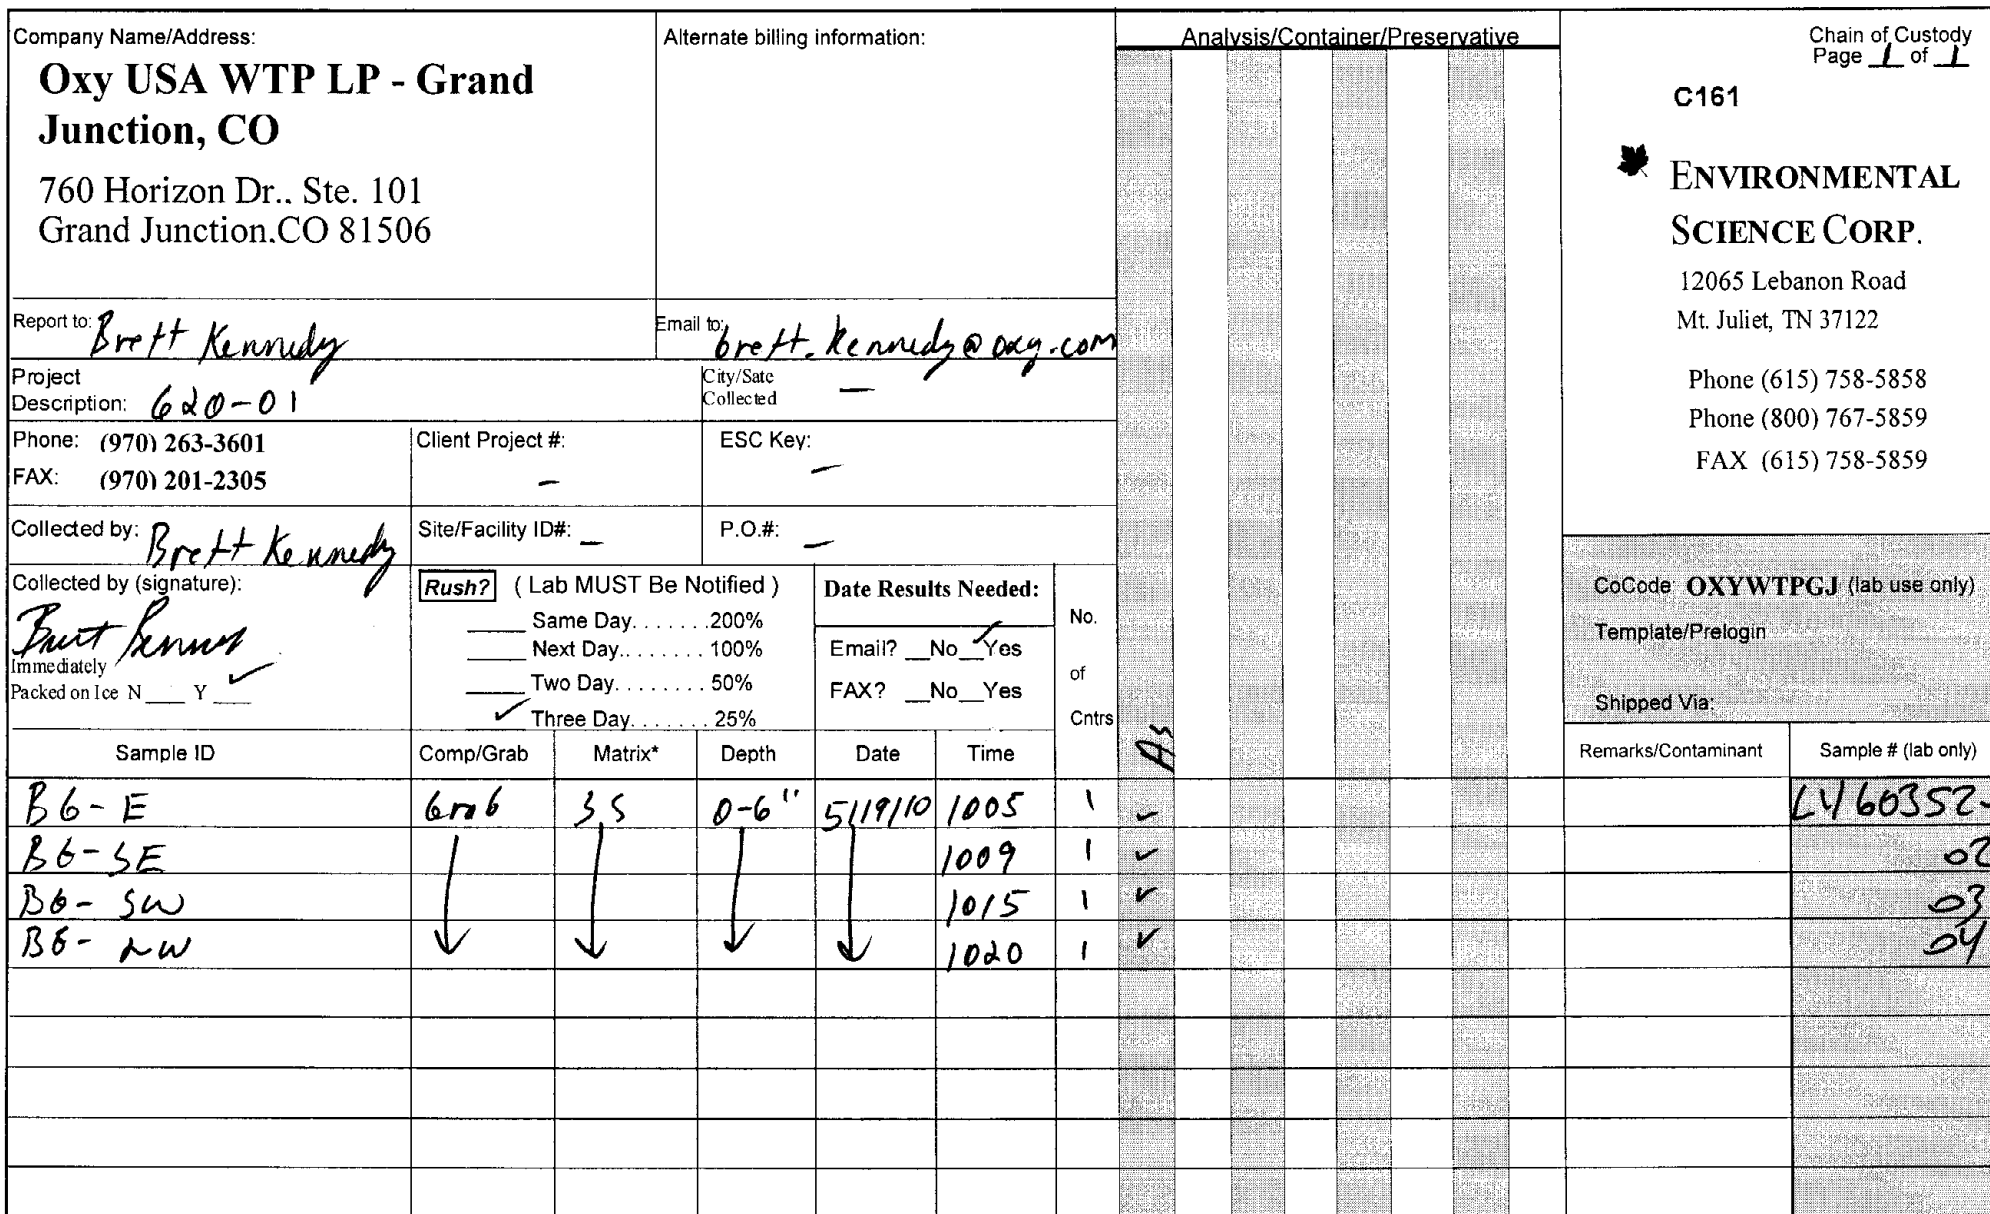 Company Name/Address:
Oxy USA WTP LP - Grand
Junction, CO
760 Horizon Dr.. Ste. 101
Grand Junction.CO 81506
Alternate billing information:
Analysis/Container/Preservative
Chain of Custody
Page 1 of 1
C161
ENVIRONMENTAL
SCIENCE CORP.
12065 Lebanon Road
Mt. Juliet, TN 37122
Phone (615) 758-5858
Phone (800) 767-5859
FAX (615) 758-5859
Report to: Brett Kennedy
Email to: brett.kennedy@oxy.com
Project
Description: 620-01
City/Sate
Collected —
Phone: (970) 263-3601
FAX: (970) 201-2305
Client Project #:
—
ESC Key:
—
Collected by: Brett Kennedy
Site/Facility ID#: —
P.O.#: —
Collected by (signature):
Immediately
Packed on Ice N ___ Y ✓
Rush? ( Lab MUST Be Notified )
____ Same Day. . . . . . .200%
____ Next Day.. . . . . . . 100%
____ Two Day. . . . . . . . 50%
✓ Three Day. . . . . . . 25%
Date Results Needed:
Email? __No ✓Yes
FAX? __No__Yes
No.
of
Cntrs
As
CoCode OXYWTPGJ (lab use only)
Template/Prelogin
Shipped Via:
Sample ID Comp/Grab Matrix* Depth Date Time Remarks/Contaminant Sample # (lab only)
BG-E Grab SS 0-6" 5/19/10 1005 1 ✓ L460352-
BG-SE 1009 1 ✓ 02
BG-SW 1015 1 ✓ 03
BG-NW 1020 1 ✓ 04